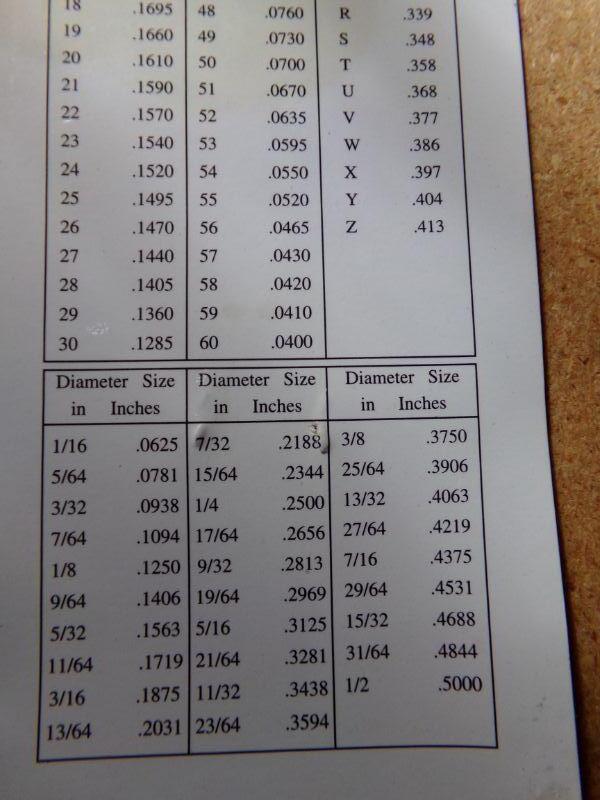 18 .1695 48 .0760 R .339
19 .1660 49 .0730 S .348
20 .1610 50 .0700 T .358
21 .1590 51 .0670 U .368
22 .1570 52 .0635 V .377
23 .1540 53 .0595 W .386
24 .1520 54 .0550 X .397
25 .1495 55 .0520 Y .404
26 .1470 56 .0465 Z .413
27 .1440 57 .0430
28 .1405 58 .0420
29 .1360 59 .0410
30 .1285 60 .0400
Diameter Size Diameter Size Diameter Size
in Inches in Inches in Inches
1/16 .0625 7/32 .2188 3/8 .3750
5/64 .0781 15/64 .2344 25/64 .3906
3/32 .0938 1/4 .2500 13/32 .4063
7/64 .1094 17/64 .2656 27/64 .4219
1/8 .1250 9/32 .2813 7/16 .4375
9/64 .1406 19/64 .2969 29/64 .4531
5/32 .1563 5/16 .3125 15/32 .4688
11/64 .1719 21/64 .3281 31/64 .4844
3/16 .1875 11/32 .3438 1/2 .5000
13/64 .2031 23/64 .3594